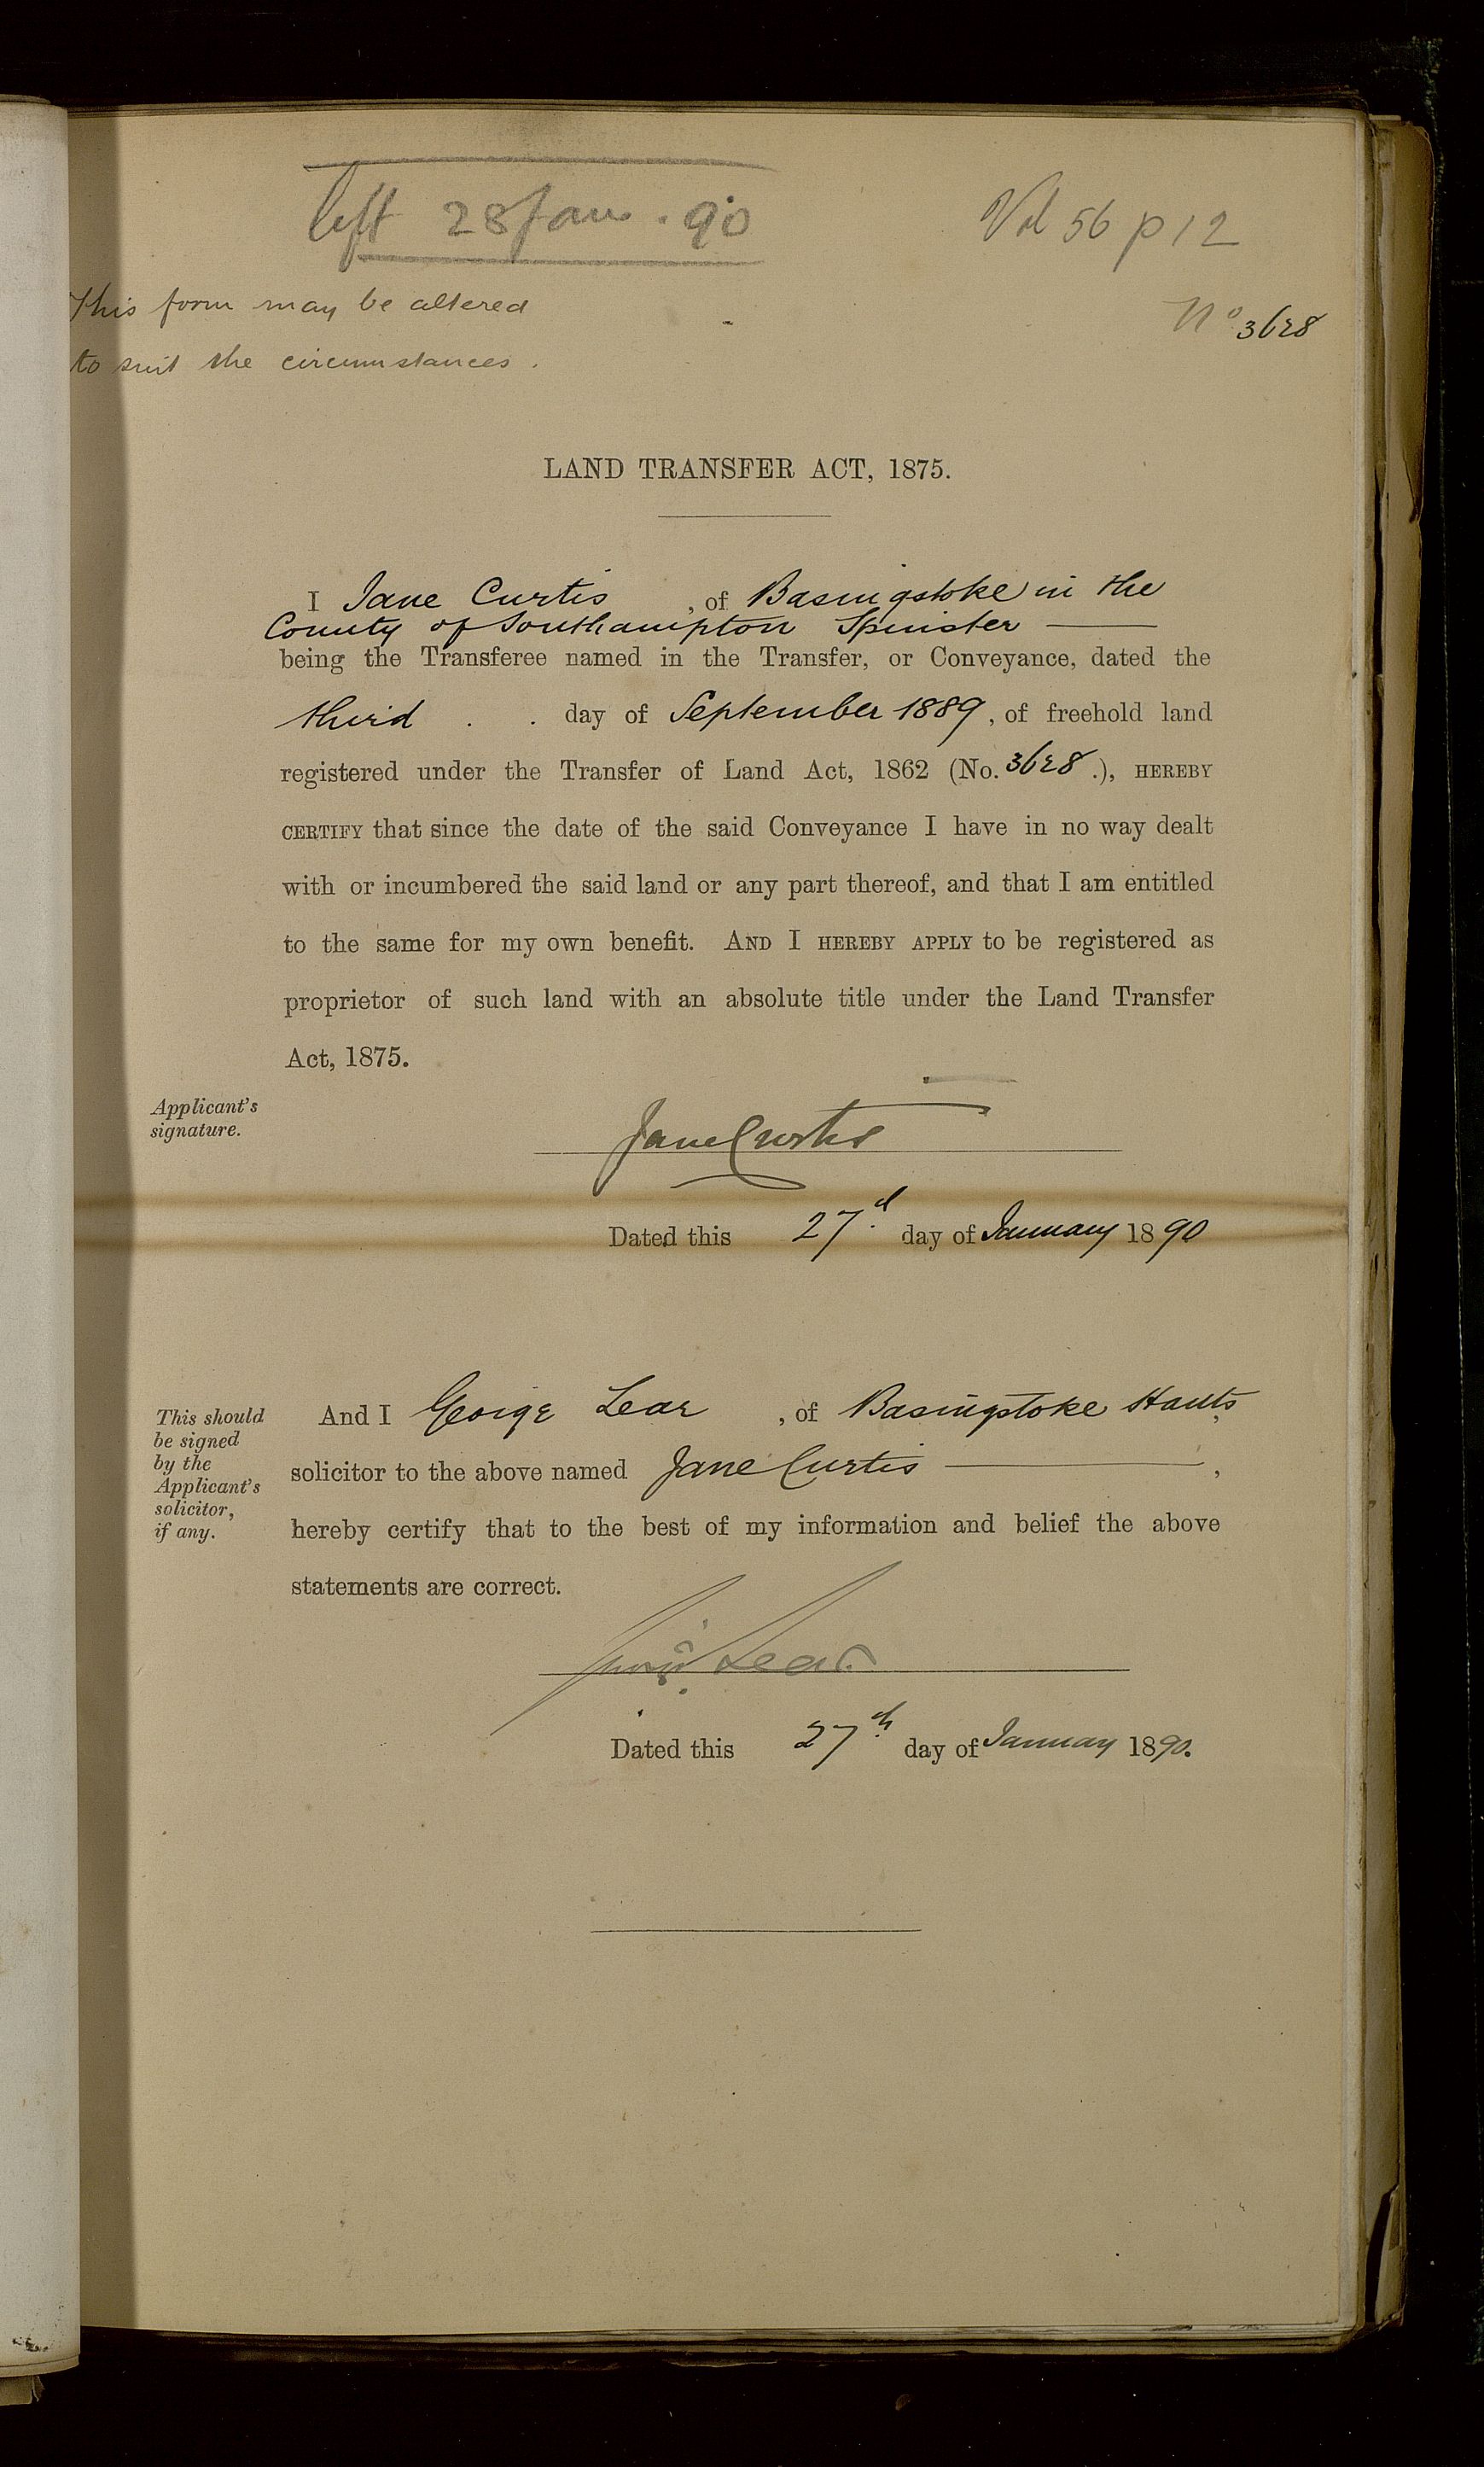 left 28 Jan. 90
Vol 56 p 12
This form may be altered
to suit the circumstances.
No 3628
LAND TRANSFER ACT, 1875.
I Jane Curtis, of Basingstoke in the
County of Southampton Spinster
being the Transferee named in the Transfer, or Conveyance, dated the
third day of September 1889, of freehold land
registered under the Transfer of Land Act, 1862 (No. 3628.), HEREBY
CERTIFY that since the date of the said Conveyance I have in no way dealt
with or incumbered the said land or any part thereof, and that I am entitled
to the same for my own benefit. AND I HEREBY APPLY to be registered as
proprietor of such land with an absolute title under the Land Transfer
Act, 1875.
Applicant's
signature.
Jane Curtis
Dated this 27d day of January 1890
This should
be signed
by the
Applicant's
solicitor,
if any.
And I George Lear, of Basingstoke Hants,
solicitor to the above named Jane Curtis,
hereby certify that to the best of my information and belief the above
statements are correct.
George Lear
Dated this 27th day of January 1890.